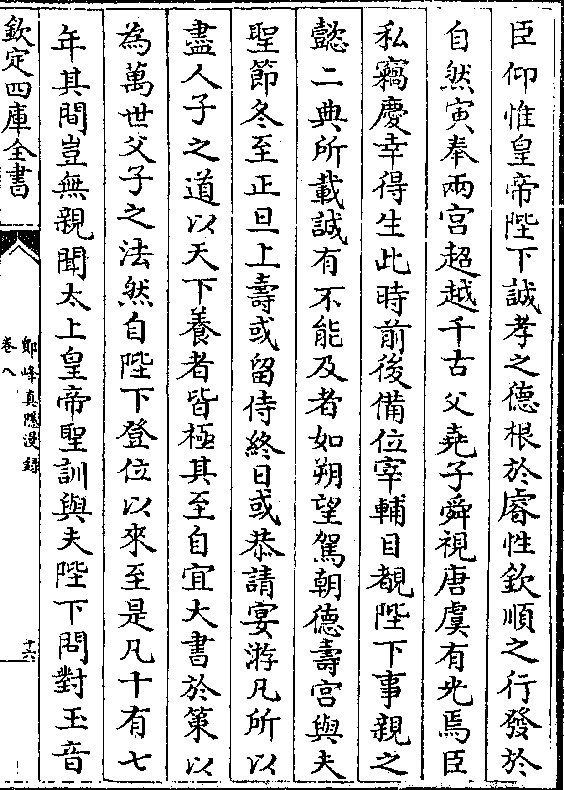 臣仰惟皇帝陛下誠孝之德根於睿性欽順之行發於
自然寅奉兩宮超越千古父堯子舜視唐虞有光焉臣
私竊慶幸得生此時前後備位宰輔目覩陛下事親之
懿二典所載誠有不能及者如朔望駕朝德壽宮與夫
聖節冬至正旦上壽或留侍終日或恭請宴游凡所以
盡人子之道以天下養者皆極其至自宜大書於策以
為萬世父子之法然自陛下登位以來至是凡十有七
年其間豈無親聞太上皇帝聖訓與夫陛下問對玉音
欽定四庫全書
鄮峰真隱漫録
卷八
十六